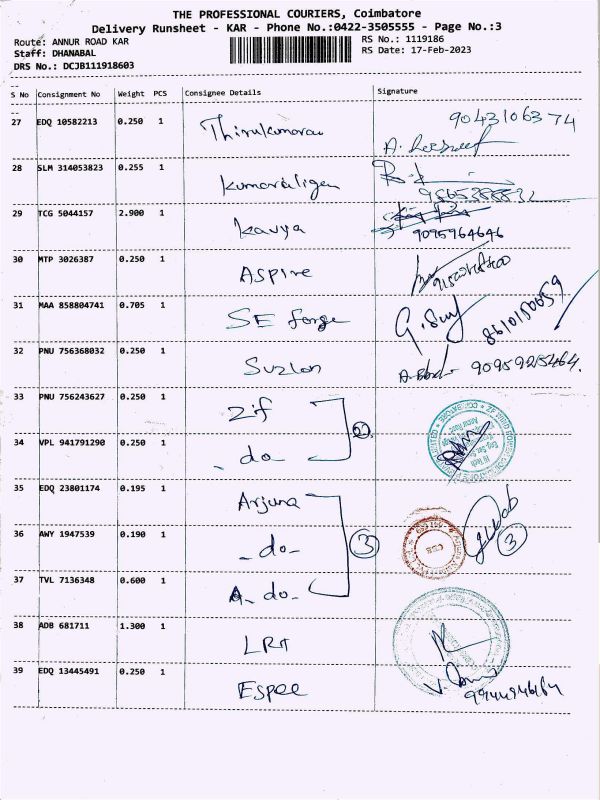 THE PROFESSIONAL COURIERS, Coimbatore
Delivery Runsheet - KAR - Phone No.:0422-3505555 - Page No.:3
Route: ANNUR ROAD KAR RS No.: 1119186
Staff: DHANABAL RS Date: 17-Feb-2023
DRS No.: DCJB111918603
S No Consignment No Weight PCS Consignee Details Signature
27 EDQ 10582213 0.250 1 Thirukumaran 9043106374
28 SLM 314053823 0.255 1 Kumaraligen
29 TCG 5044157 2.900 1 Kavya
9095964646
30 MTP 3026387 0.250 1 Aspire
31 MAA 858804741 0.705 1 SE forge G. 8610150059
32 PNU 756368032 0.250 1 Suzlon 9095925464.
33 PNU 756243627 0.250 1 Zif
34 VPL 941791290 0.250 1 - do - 2
35 EDQ 23801174 0.195 1 Arjuna
36 AWY 1947539 0.190 1 - do - 3 3
37 TVL 7136348 0.600 1 - do -
38 ADB 681711 1.300 1 LRT
39 EDQ 13445491 0.250 1 Espee